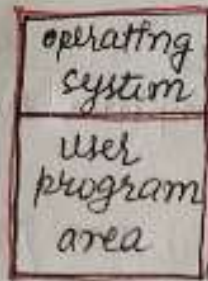 operating
system
user
program
area